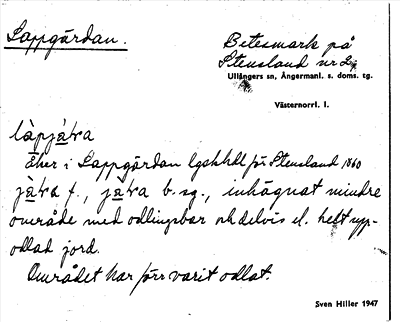 Lappgärdan.
Betesmark på
Stensland nr 2,
Ullångers sn, Ångermanl. s. doms. tg.
Västernorrl. l.
làpjàra
Åker i Lappgärdan lgskhdl på Stensland 1860
jàra f., jàra b. sg., inhägnat mindre
område med odlingsbar och delvis el. helt upp-
odlad jord.
Området har förr varit odlat.
Sven Hiller 1947